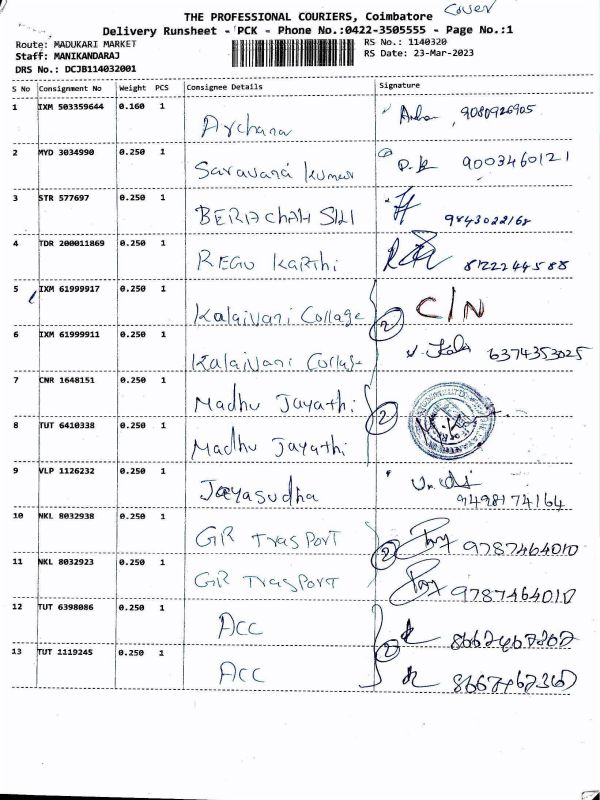 Cover
THE PROFESSIONAL COURIERS, Coimbatore
Delivery Runsheet - PCK - Phone No.:0422-3505555 - Page No.:1
Route: MADUKARI MARKET
RS No.: 1140320
Staff: MANIKANDARAJ
RS Date: 23-Mar-2023
DRS No.: DCJB114032001
S No Consignment No Weight PCS Consignee Details Signature
1 IXM 503359644 0.160 1 Archana 9080926905
2 MYD 3034990 0.250 1 Saravana kumar 9003460121
3 STR 577697 0.250 1 9843022168
4 TDR 200011869 0.250 1 REGU Karthi 8122244588
5 IXM 61999917 0.250 1 Kalaivani Collage C/N
2
6 IXM 61999911 0.250 1 Kalaivani Collage 6374353025
7 CNR 1648151 0.250 1 Madhu Jayathi
2
8 TUT 6410338 0.250 1 Madhu Jayathi
9 VLP 1126232 0.250 1 Jayasudha 9498174164
10 NKL 8032938 0.250 1 GR TrasPort 9787464010
2
11 NKL 8032923 0.250 1 GR TrasPort 9787464010
12 TUT 6398086 0.250 1 ACC
2
13 TUT 1119245 0.250 1 ACC